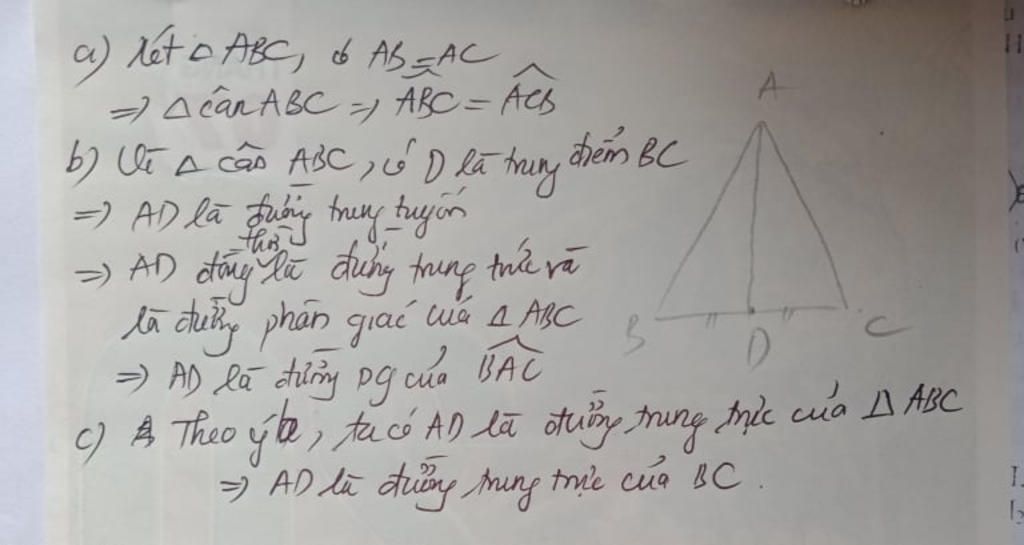 a) Xét △ ABC, có AB = AC
=> △ cân ABC => ABC = ACB
b) Vì △ cân ABC, có D là trung điểm BC
=> AD là đường trung tuyến
=> AD đồng thời là đường trung trực và
là đường phân giác của △ ABC
=> AD là đường PG của BAC
c) Theo ý b, ta có AD là đường trung trực của △ ABC
=> AD là đường trung trực của BC.
A
B
D
C